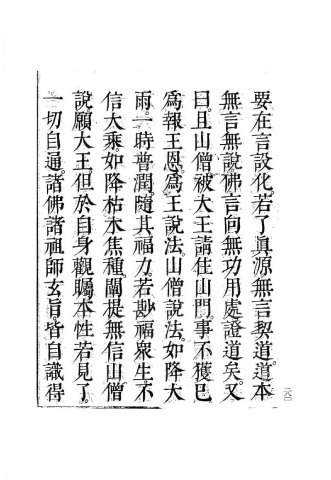 要在言說化若了眞源無言契道道本
無言無說佛言向無功用處證道矣又
曰且山僧被大王請住山門事不獲已
爲報王恩爲王說法山僧說法如降大
雨一時普潤隨其福力若尠福衆生不
信大乘如降枯木焦種闡提無信山僧
說願大王但於自身觀矚本性若見了
一切自通諸佛諸祖師玄旨皆自識得